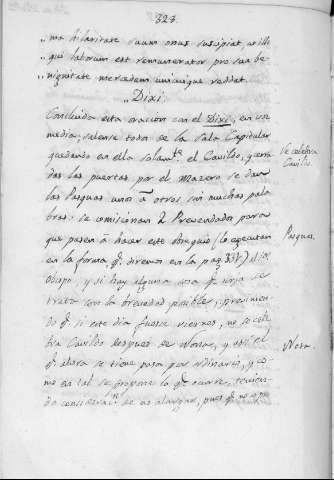 323.
„ ma hilaritate suum onus suscipiat, ut ille
„ qui laborum est remunerator pro sua be-
„ nignitate mercedem unicuique reddat.
„ Dixi.
Concluida esta oracion con el Dixi, en voz
media, salense todos de la Sala Capitular
quedando en ella solam.te el Cavildo, y cerra-
das las puertas por el Mazero se dan
las Pasquas unos á otros sin muchas pala-
bras: se comisionan 2 Prevendados para
que pasen á hacer este obsequio (lo executan
en la forma q.e diremos en la pag. 337) al S.or
Obispo, y si hay alguna cosa q.e urja se
trata con la brevedad posible; previniendo
q.e si este dia fuese viernes, no se cele-
bra Cavildo despues de Nona, y este el
q.e ahora se tiene pasa por ordinario, y co-
mo en tal se propone lo q.e ocurre, tenien-
do considerac.n de no alargar, pues q.e no
Se celebra
Cavildo.
Pasquas.
Nota.